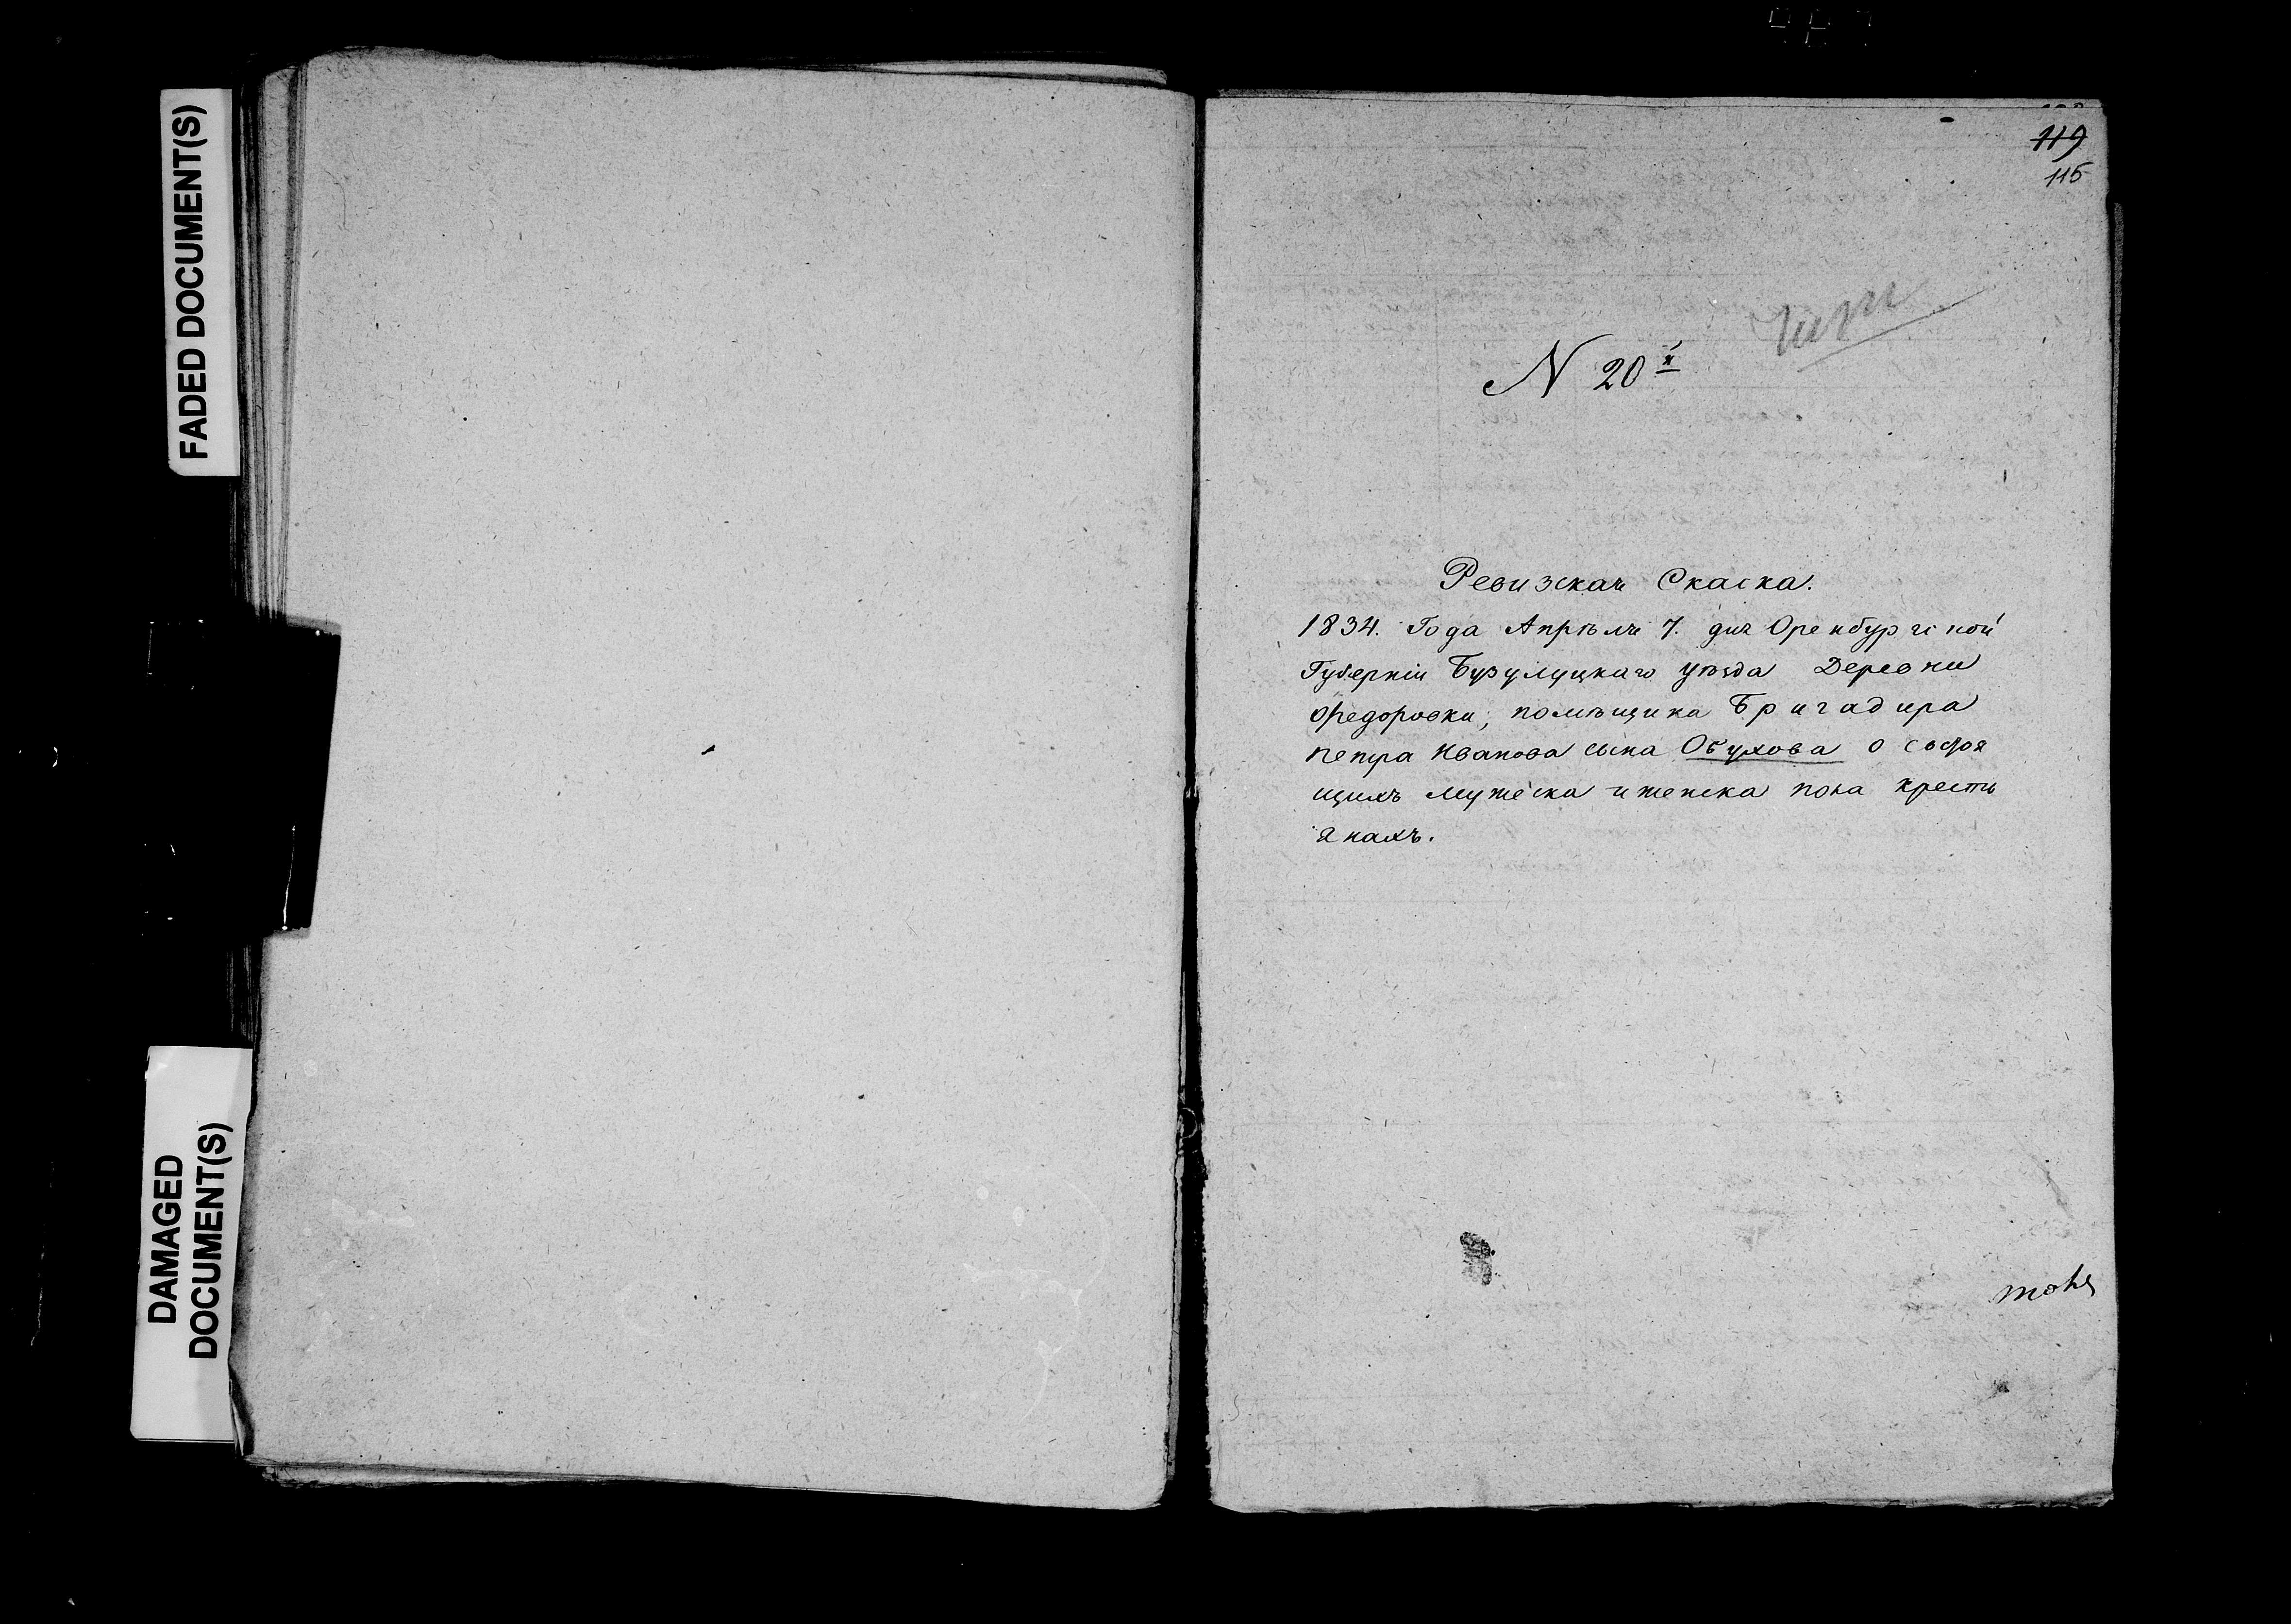 FADED DOCUMENT(S)
DAMAGED
DOCUMENT(S)
119
115
N 20я
Ревизская Скаска.
1834. Года Апрѣля 7. дня Оренбургской
Губерніи Бузулуцкаго уѣзда Деревни
Федоровки, помѣщика Бригадира
Петра Иванова сына Обухова о состоя
щихъ мужеска и женска пола кресть
янахъ.